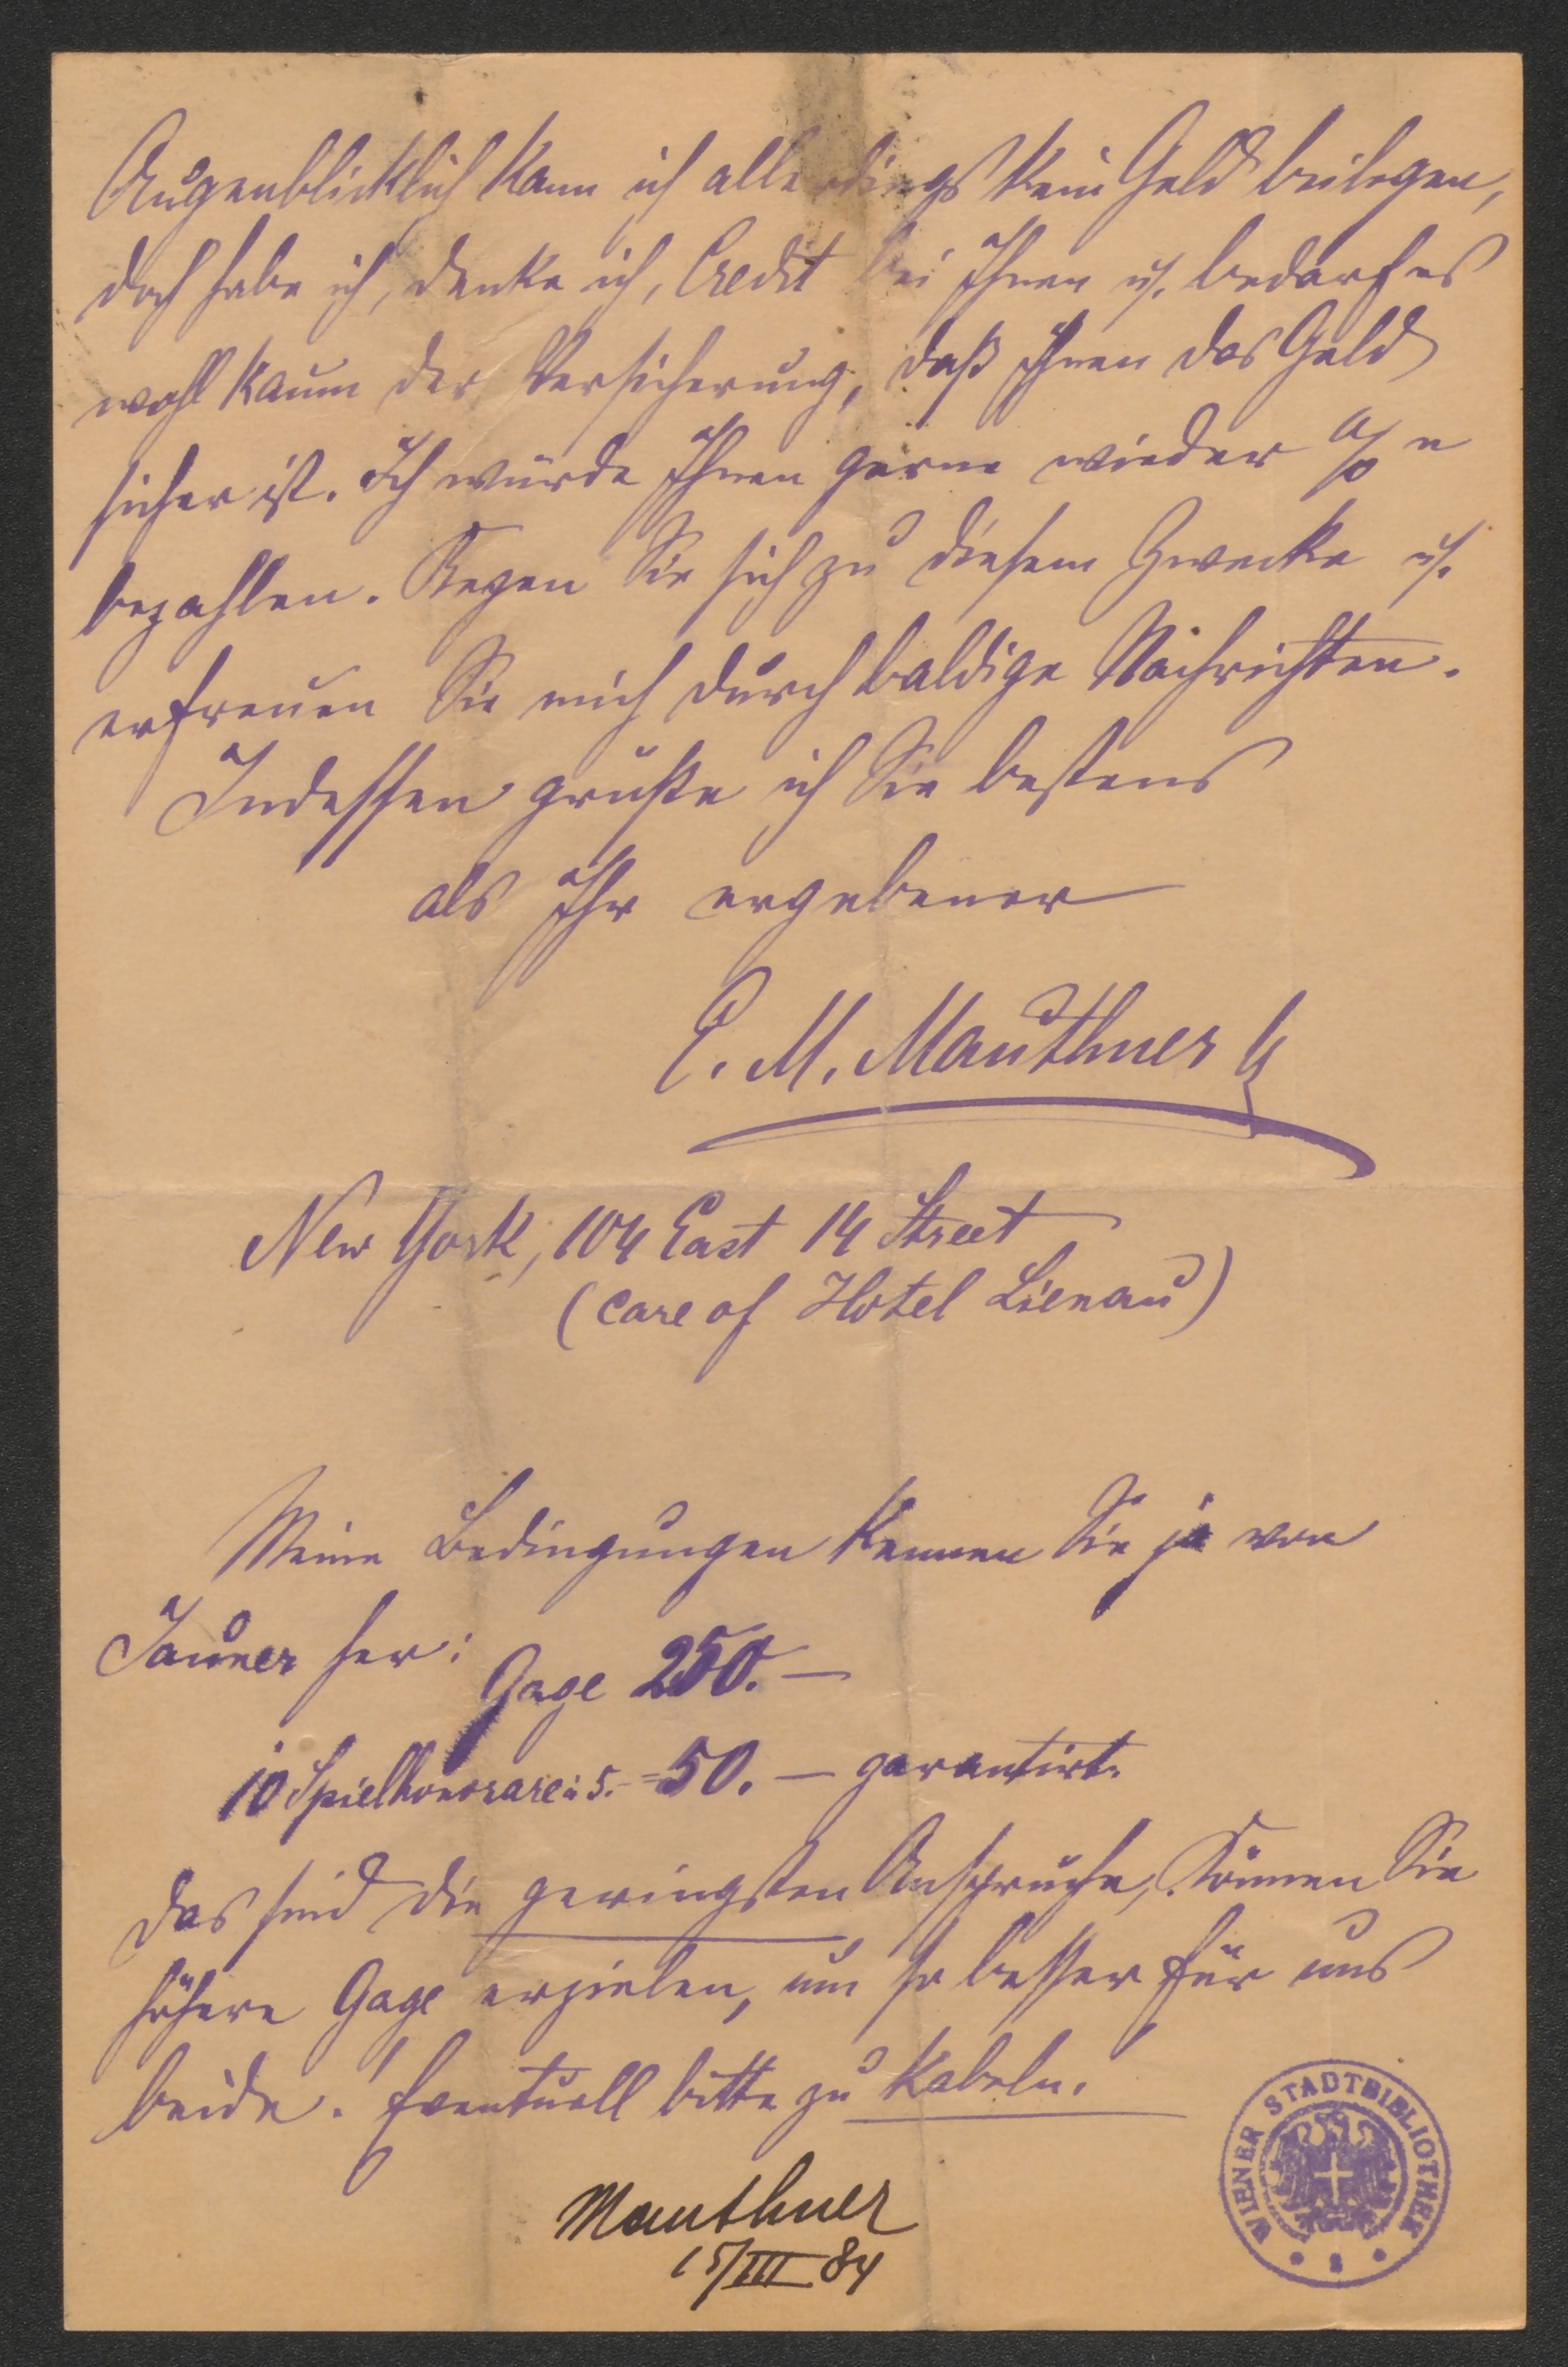 Augenblicklich kann ich allerdings kein Geld beilegen,
doch habe ich, denke ich, Credit bei Ihnen u. bedarf es
wohl kaum der Versicherung, daß Ihnen das Geld
sicher ist. Ich würde Ihnen gerne wieder % e
bezahlen. Regen Sie sich zu diesem Zwecke u.
erfreuen Sie mich durch baldige Nachrichten.
Indessen grüße ich Sie bestens
als Ihr ergebener
C. M. Mauthner
New York, 104 East 14 Street
(care of Hotel Lienau)
Meine Bedingungen kennen Sie ja von
Jauner her:
Gage 250.—
10 Spielhonorare à 5.– = 50.— garantirt.
Das sind die geringsten Ansprüche, können Sie
höhere Gage erzielen, um so besser für uns
beide. Eventuell bitte zu kabeln.
Mauthner
15/III 84
WIENER STADTBIBLIOTHEK